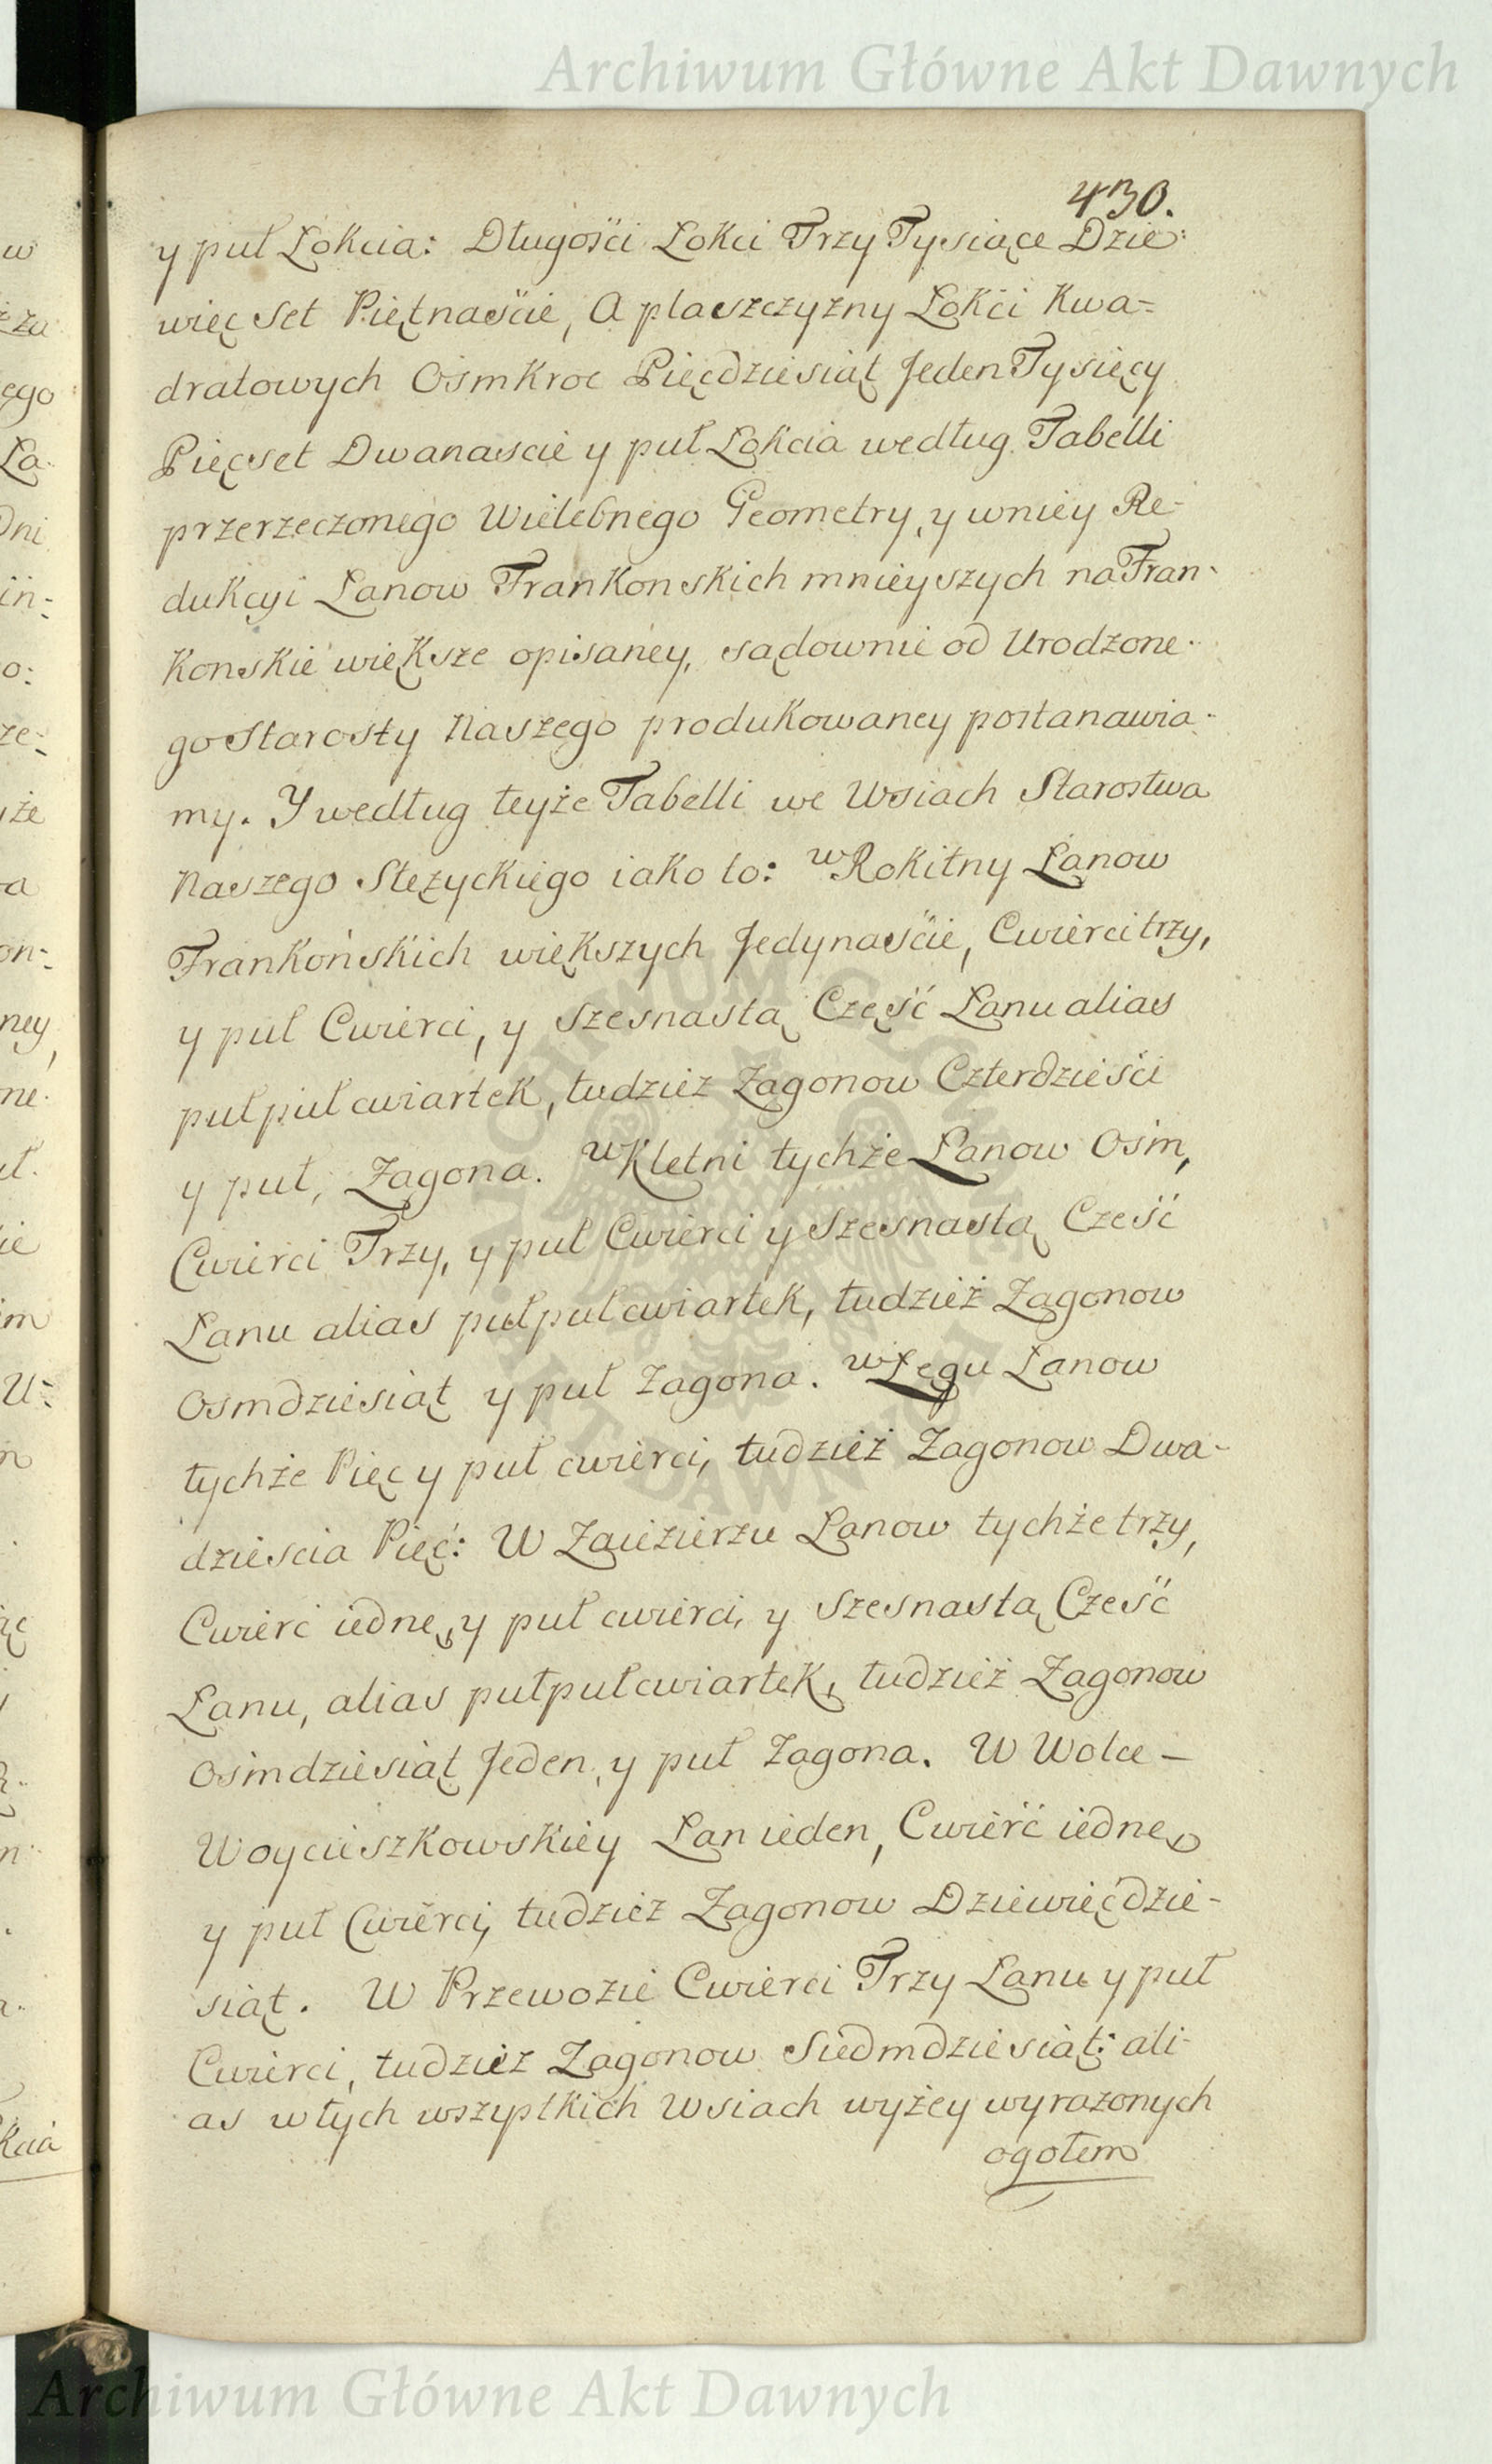 Archiwum Główne Akt Dawnych
430.
y puł Łokcia: Długości Łokci Trzy Tysiące Dzie:
więc set Piętnaście, A plaszczyzny Łokći Kwa=
dratowych Osmkroc Pięcdziesiąt Jeden Tysięcy
Pięcset Dwanascie y puł Łokcia według Tabelli
przerzeczonego Wielebnego Geometry, y wniey Re-
dukcyi Łanow Frankonskich mnieyszych na Fran-
konskie większe opisaney, sądownie od Urodzone-
go Starosty Naszego produkowaney postanawia-
my. Y według teyże Tabelli we Wsiach Starostwa
Naszego Stężyckiego iako to: w Rokitny Łanow
Frankońskich większych Jedynaście, Cwierci trzy,
y puł Cwierci, y Szesnastą Część Łanu alias
puł puł cwiartek, tudziez Zagonow Czterdzieści
y puł, Zagona. w Kletni tychże Łanow Ośm,
Cwierci Trzy, y puł Cwierci y Szesnastą Cześć
Łanu alias puł puł cwiartek, tudzież Zagonow
Osmdziesiąt y puł Zagona. w Łęgu Łanow
tychże Pięc y puł cwierci, tudzież Zagonow Dwa-
dziescia Pięć: W Zaiezierzu Łanow tychże trzy,
Cwierc iednę, y puł cwierci, y Szesnastą Cześć
Łanu, alias pułpuł cwiartek, tudzież Zagonow
Ośmdziesiąt Jeden, y puł Zagona. W Wolce –
Woycieszkowskiey Łan ieden, Cwierć iednę
y puł Cwierci, tudziez Zagonow Dziewięćdzie-
siąt. W Przewozie Cwierci Trzy Łanu y puł
Cwierci, tudziez Zagonow Siedmdziesiąt: ali-
as w tych wszystkich Wsiach wyżey wyrazonych
ogołem
Archiwum Główne Akt Dawnych